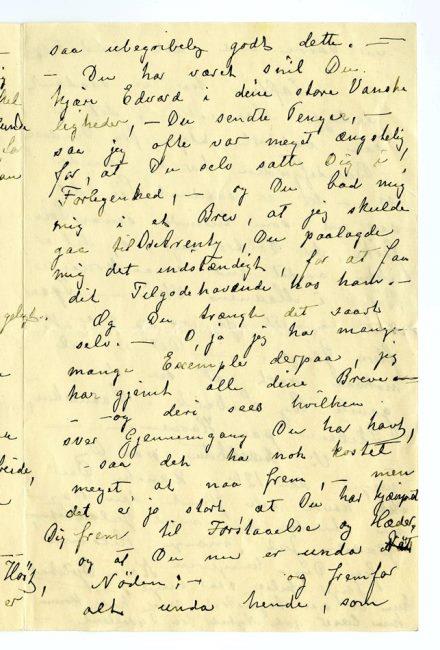 saa ubegribelig godt dette. —
— Du har været snil Du
kjære Edvard i dine store Vanske
ligheder, — Du sendte Penger, —
saa jeg ofte var meget ængstelig
for, at Du selv satte Dig i
Forlegenhed, — og Du bad mig
mig i et Brev, at jeg skulde
gaa til, Du paalagde
mig det indstændigt, for at faa
dit Tilgodehavende hos ham. —
Og Du trængte det saart
selv. — O, ja jeg har mange —
mange Exempler derpaa, jeg
har gjemt alle dine Breve —
— og deri sees hvilken
svær Gjennemgang Du har havt,
— saa det har nok kostet
meget, at naa frem, — men
det er jo stort at Du har kjæmpet
Dig frem til Forstaaelse og Hæder,
og at Du nu er unda
Nøden; — og fremfor
alt unda hende, som